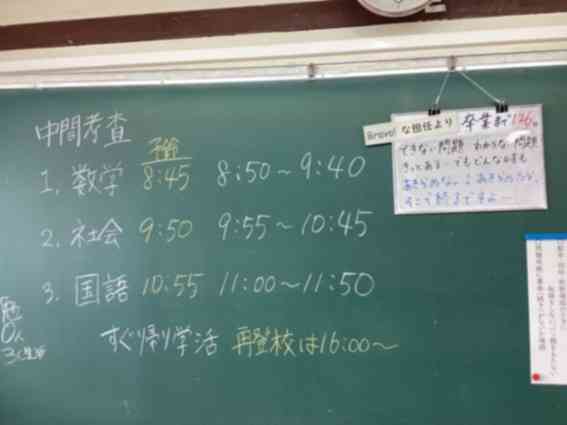 中間考査
予鈴
1. 数学 8:45 8:50～9:40
2. 社会 9:50 9:55～10:45
3. 国語 10:55 11:00～11:50
すぐ帰り学活 再登校は16:00～
Bravo!な担任より 卒業まで126日
できない問題 わからない問題
きっとある…でもどんな時も
あきらめない。あきらめたら、
そこで終了ですよ…